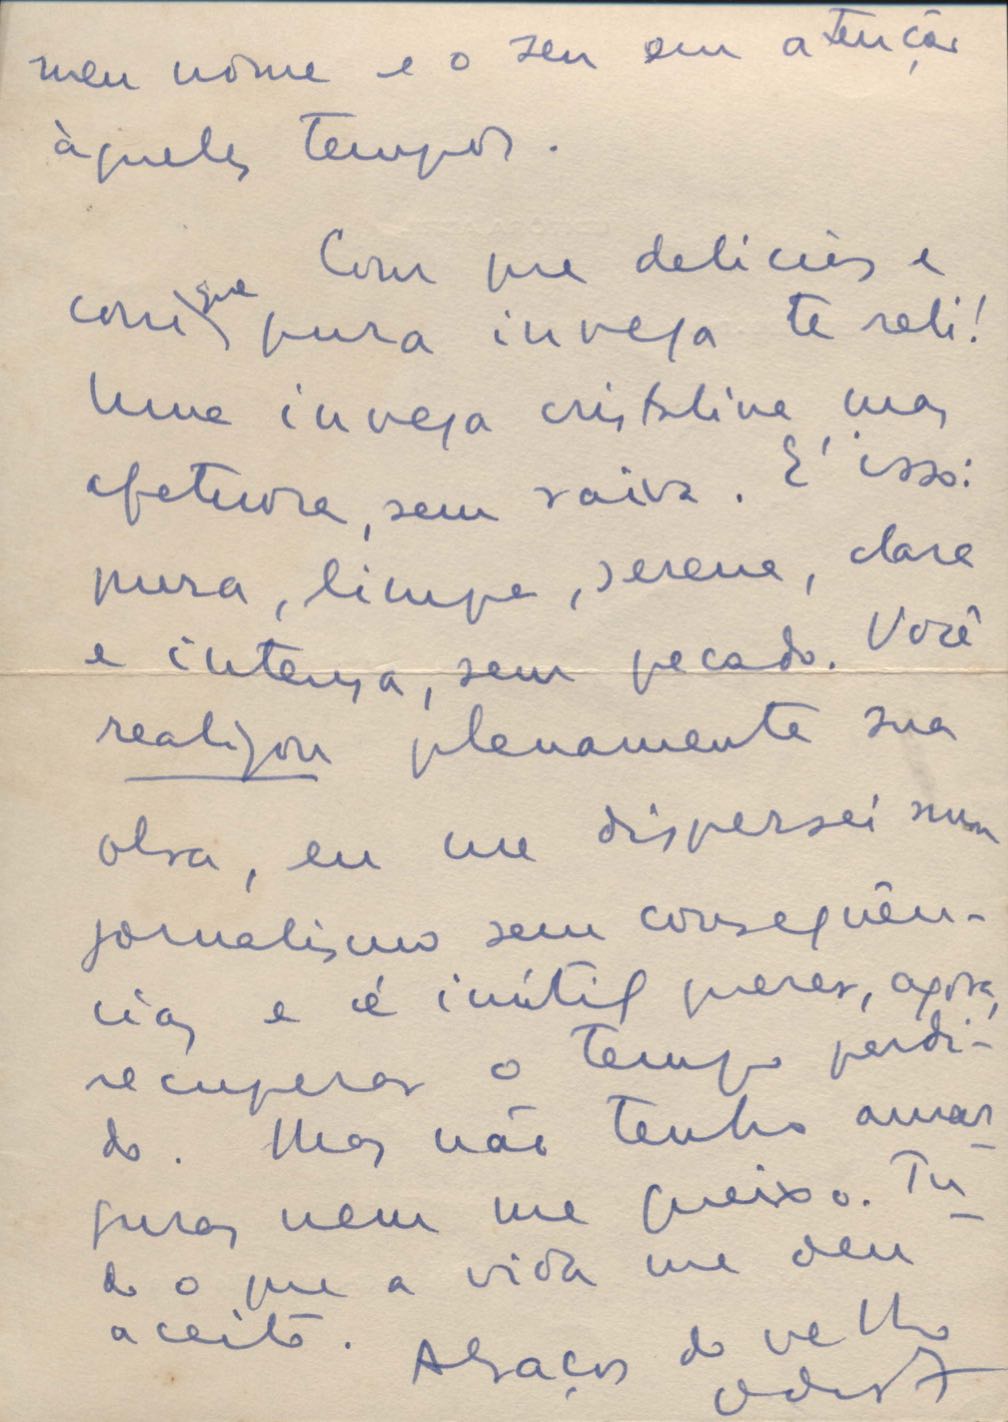 meu nome e o seu em atenção
àqueles tempos.
Com que delícias e
com que pura inveja te reli!
Uma inveja cristalina mas
afetuosa, sem raiva. É isso:
pura, limpa, serena, clara
e intensa, sem pecado. Você
realizou plenamente sua
obra, eu me dispersei num
jornalismo sem consequên-
cias e é inútil querer, agora,
recuperar o tempo perdi-
do. Mas não tenho amar-
guras nem me queixo. Tu-
do o que a vida me deu
aceito. Abraços do velho